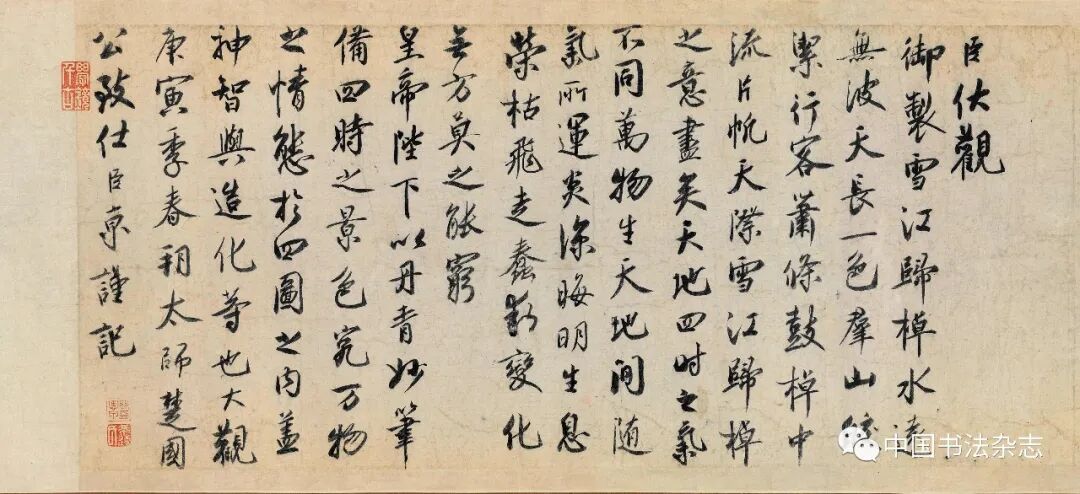 臣伏觀
御製雪江歸棹水遠
無波天長一色羣山皎
潔行客蕭條鼓棹中
流片帆天際雪江歸棹
之意盡矣天地四时之氣
不同萬物生天地間随
氣所運炎涼晦明生息
榮枯飛走蠢動變化
无方莫之能窮
皇帝陛下以丹青妙筆
備四時之景色究万物
之情態於四圖之内盖
神智與造化等也大觀
庚寅季春朔太師楚國
公致仕臣京謹記
中国书法杂志